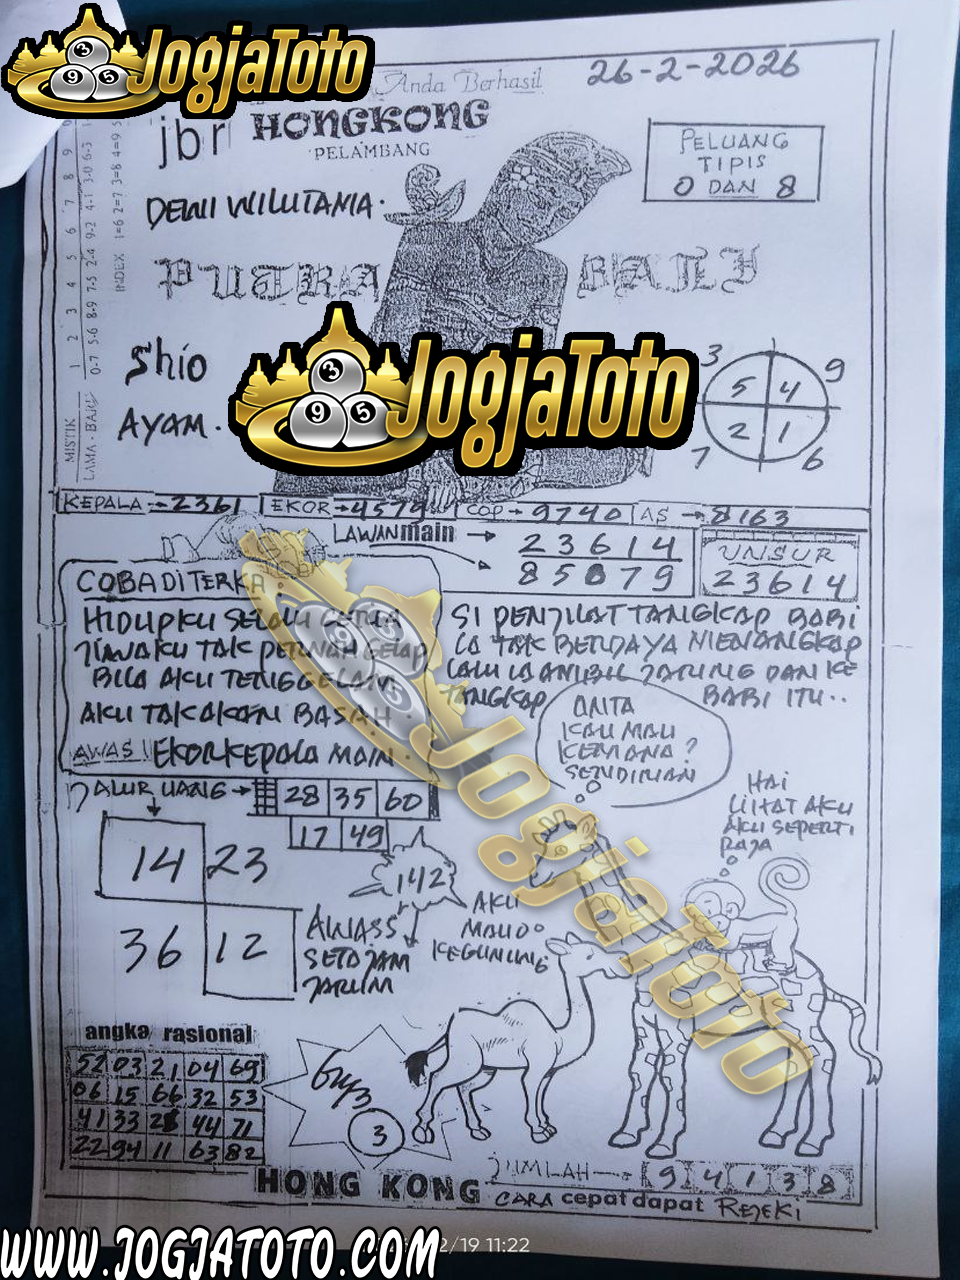 JogjaToto
Anda Berhasil
26-2-2026
jbr HONGKONG
PELAMBANG
PELUANG
TIPIS
0 DAN 8
DEWI WILUTAMA.
PUTRA BALI
Shio
AYAM.
JogjaToto
3 9
5 4
2 1
7 6
MISTIK
LAMA - BARU
1 2 3 4 5 6 7 8 9
0-7 5-6 8-9 7-5 2-4 9-2 4-1 3-0 6-3
INDEX 1=6 2=7 3=8 4=9
KEPALA → 2361
EKOR → 4579
COP → 9740
AS → 8163
LAWAN main →
23614
85079
UNSUR
23614
COBA DITERKA:
HIDUPKU SELALU CERIA
JIWAKU TAK PERNAH GELAP
BILA AKU TENGGELAM
AKU TAK AKAN BASAH.
AWAS! EKOR KEPALA MAIN.
SI PENJILAT TANGKAP BABI
IA TAK BERDAYA MENANGKAP
LALU IA AMBIL JARUNG DAN KE
TANGKAP BABI ITU..
ANITA
KAU MAU
KEMANA?
SENDIRIAN
HAI
LIHAT AKU
AKU SEPERTI
RAJA
JALUR UANG →
28 35 60
17 49
14 23
36 12
142
AWASS
SETAJAM
JARUM
AKU
MAU
KEGUNUNG
JogjaToto
angka rasional
52 03 21 04 69
06 15 66 32 53
41 33 28 44 71
22 94 11 63 82
3
JUMLAH →
9 4 1 3 8
HONG KONG
CARA cepat dapat REJEKI
2/19 11:22
WWW.JOGJATOTO.COM